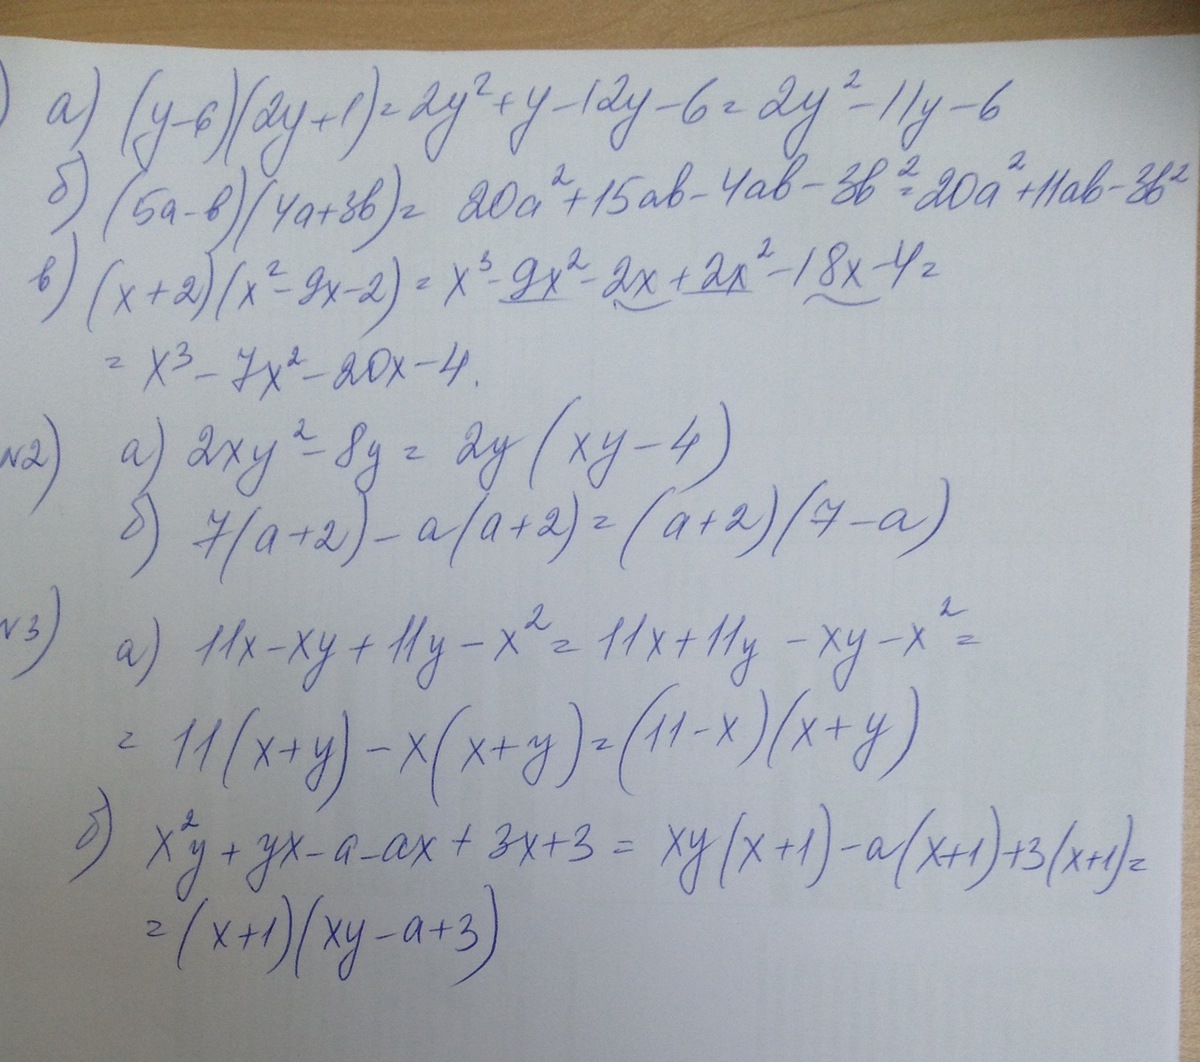 ) а) (y-6)(2y+1)=2y²+y-12y-6=2y²-11y-6
б) (5a-b)(4a+3b)= 20a²+15ab-4ab-3b²=20a²+11ab-3b²
в) (x+2)(x²-9x-2)=x³-9x²-2x+2x²-18x-4=
=x³-7x²-20x-4.
№2) а) 2xy²-8y=2y(xy-4)
б) 7(a+2)-a(a+2)=(a+2)(7-a)
№3) а) 11x-xy+11y-x²=11x+11y-xy-x²=
=11(x+y)-x(x+y)=(11-x)(x+y)
б) x²y+yx-a-ax+3x+3=xy(x+1)-a(x+1)+3(x+1)=
=(x+1)(xy-a+3)